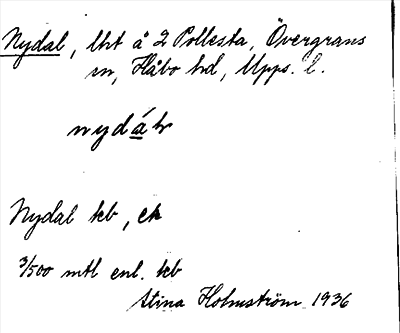 Nydal, lht å 2 Pollesta, Övergrans
sn, Håbo hd, Upps. l.
nydál
Nydal kb, ek
3/500 mtl enl. kb
Stina Holmström 1936